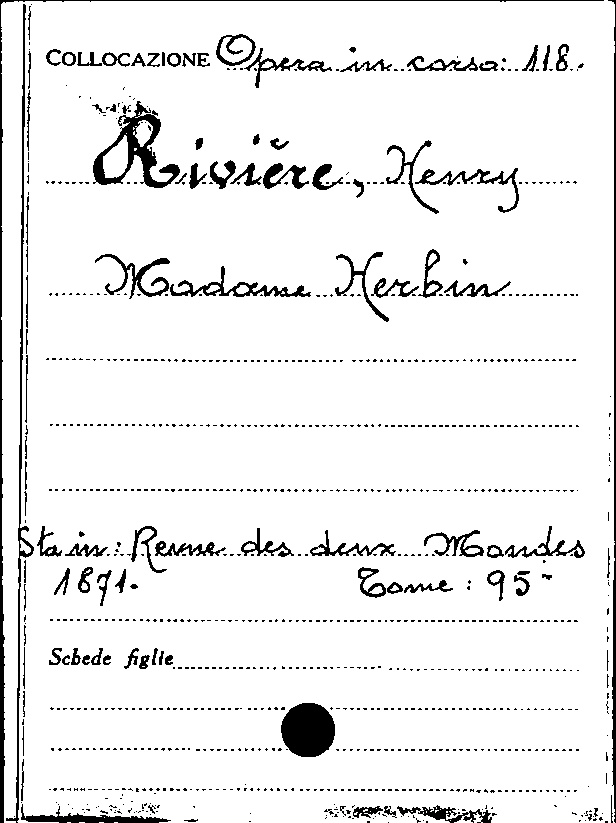 COLLOCAZIONE Opera in corso: 118.
Rivière, Henry
Madame Herbin
Sta in: Revue des deux Mondes
1871. Tome: 95-
Schede figlie